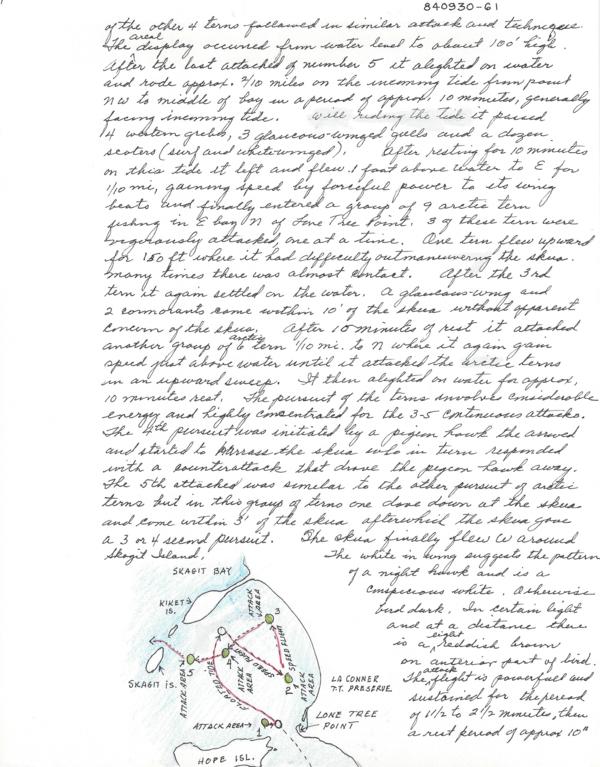 840930-61
of the other 4 terns followed in similar attack and technique.
The areal display occurred from water level to about 100' high.
After the last attacked of number 5 it alighted on water
and rode approx. 2/10 miles on the incoming tide from point
NW to middle of bay in a period of approx. 10 minutes, generally
facing incoming tide. Will riding the tide it passed
4 western grebe, 3 glaucous-winged gulls and a dozen
scoters (surf and whitewinged). After resting for 10 minutes
on this tide it left and flew .1 foot above water to E for
1/10 mi, gaining speed by forceful power to its wing
beats and finally entered a group of 9 arctic tern
fishing in E bay N of Lone Tree Point. 3 of these tern were
vigorously attacked, one at a time. One tern flew upward
for 150 ft where it had difficulty outmaneuvering the skua.
Many times there was almost contact. After the 3rd
tern it again settled on the water. A glaucous-wing and
2 cormorants come within 10' of the skua without apparent
concern of the skua. After 15 minutes of rest it attacked
another group of 6 arctic tern 1/10 mi. to N where it again gain
speed just above water until it attacked the arctic terns
in an upward sweep. It then alighted on water for approx.
10 minutes rest. The pursuit of the terns involves considerable
energy and highly concentrated for the 3-5 continuous attacks.
The 4th pursuit was initiated by a pigeon hawk the arrived
and started to harrase the skua who in turn responded
with a counterattack that drove the pigeon hawk away.
The 5th attacked was similar to the other pursuit of arctic
terns but in this group of terns one dove down at the skua
and come within 3' of the skua afterwhich the skua gave
a 3 or 4 second pursuit. The skua finally flew W around
Skagit Island.
The white in wing suggests the pattern
of a night hawk and is a
conspicious white. Otherwise
bird dark. In certain light
and at a distance there
is a slight reddish brown
on anterior part of bird.
The attack flight is powerful and
sustained for the period
of 1 1/2 to 2 1/2 minutes, then
a rest period of approx 10"
SKAGIT BAY
KIKET IS.
ATTACK AREA
3
SPEED FLIGHT
4
ATTACK AREA
SPEED FLIGHT
5
ATTACK AREA
SKAGIT IS.
2
ATTACK AREA
FLOATED TIDE
LA CONNER
T.T. PRESERVE
ATTACK AREA
1
LONE TREE
POINT
HOPE ISL.